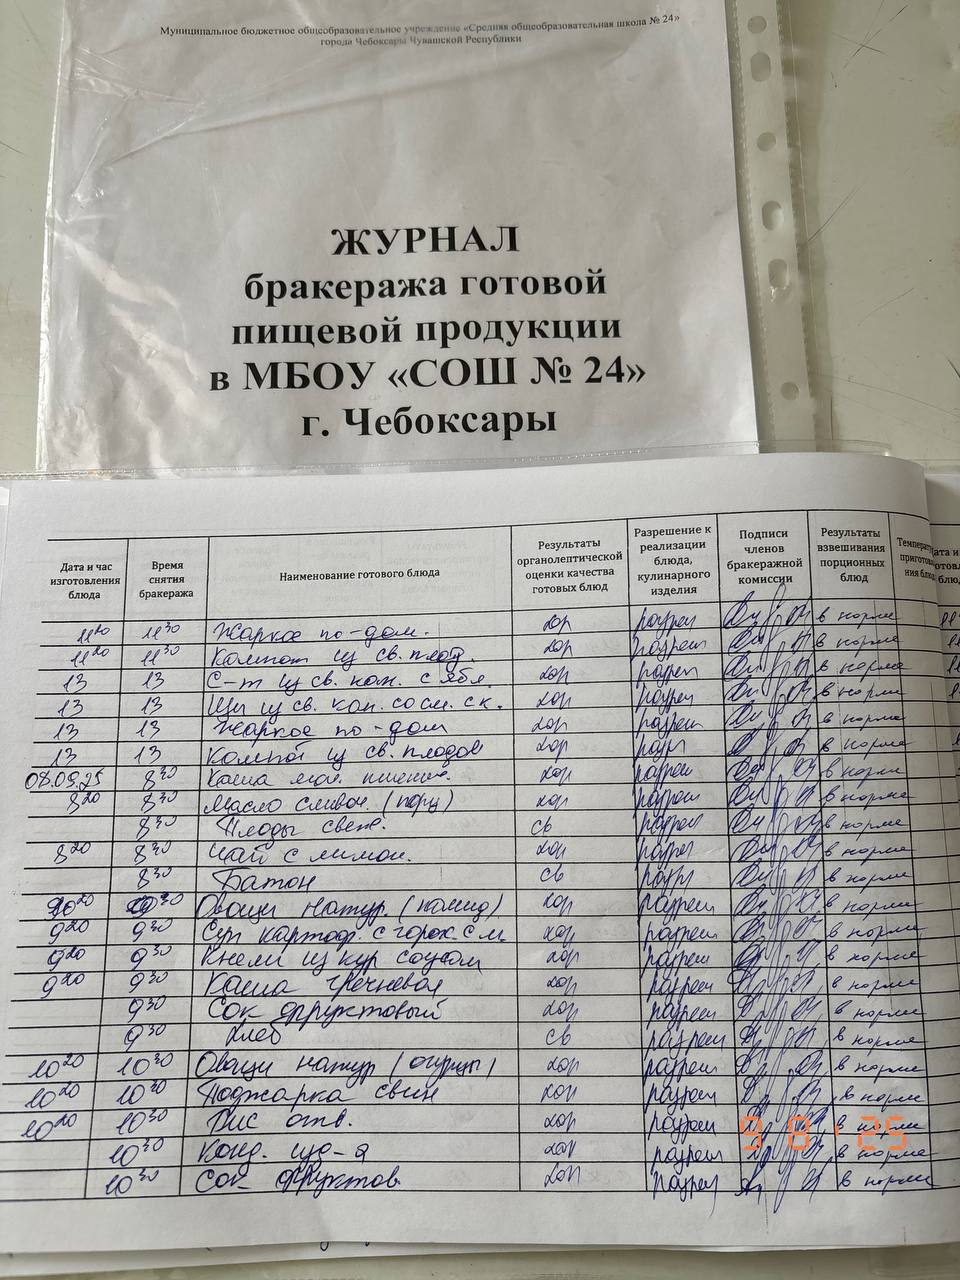 Муниципальное бюджетное общеобразовательное учреждение «Средняя общеобразовательная школа № 24»
города Чебоксары Чувашской Республики
ЖУРНАЛ
бракеража готовой
пищевой продукции
в МБОУ «СОШ № 24»
г. Чебоксары
Дата и час изготовления блюда Время снятия бракеража Наименование готового блюда Результаты органолептической оценки качества готовых блюд Разрешение к реализации блюда, кулинарного изделия Подписи членов бракеражной комиссии Результаты взвешивания порционных блюд
11 20 11 30 Жаркое по-дом. хор разреш в норме
11 20 11 30 Компот из св. плод. хор разреш в норме
13 13 С-т из св. кап. с ябл. хор разреш в норме
13 13 Щи из св. кап. со см. ск. хор разреш в норме
13 13 Жаркое по-дом хор разреш в норме
13 13 Компот из св. плодов хор разр в норме
08.09.25 8 30 Каша мол. пшенич. хор разреш в норме
8 20 8 30 Масло сливоч. (порц) хор разреш в норме
8 30 Плоды свеж. св разреш в норме
8 20 8 30 Чай с лимон. хор разреш в норме
8 30 Батон св разр в норме
Овощи натур. (помид) хор разреш в норме
9 20 9 30 Суп картоф. с горох. с м хор разреш в норме
9 20 9 30 Кнели из кур соусом хор разреш в норме
9 20 9 30 Каша гречневая хор разреш в норме
9 30 Сок фруктовый хор разреш в норме
9 30 хлеб св разреш в норме
10 20 10 30 Овощи натур (огурцы) хор разреш в норме
10 20 10 30 Поджарка свин хор разреш в норме
10 20 10 30 Рис отв. хор разреш в норме
10 30 Конд. изд-я хор разреш в норме
10 30 Сок фруктов. хор разреш в норме
9 8 '25